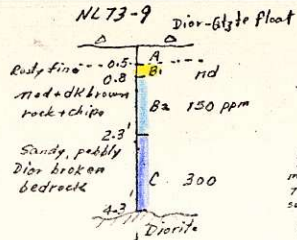 NL73-9
Dior-Gtzte float
Rusty fine 0.5 A
0.8 B1 nd
med + dk brown
rock + chips B2 150 ppm
2.3'
Sandy, pebbly
Dior broken
bedrock C 300
4.3'
Diorite